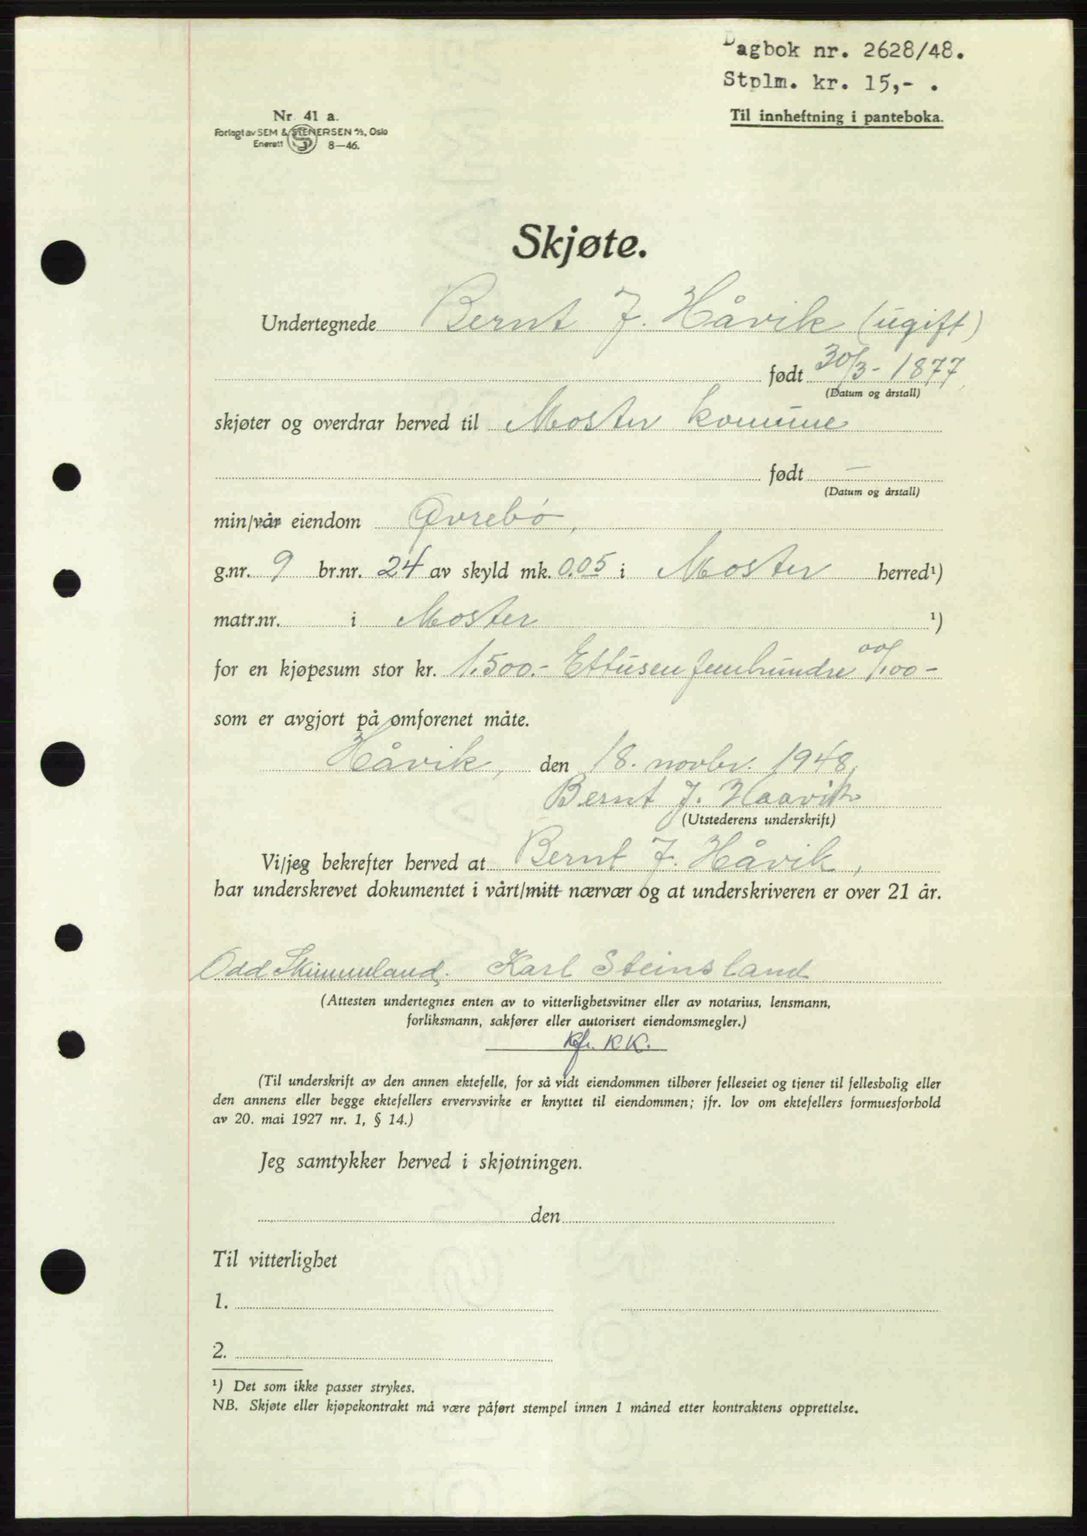 Dagbok nr. 2628/48.
Stplm. kr. 15,- .
Til innheftning i panteboka.
Nr. 41 a.
Forlagt av SEM & STENERSEN A/S, Oslo
Enerett 8—46.
Skjøte.
Undertegnede Bernt J. Håvik (ugift)
født 30/3 - 1877
(Datum og årstall)
skjøter og overdrar herved til Moster komune
født —
(Datum og årstall)
min/vår eiendom Øvrebø,
g.nr. 9 br.nr. 24 av skyld mk. 0.05 i Moster herred¹)
matr.nr. i Moster ¹)
for en kjøpesum stor kr. 1.500.- Ettusen femhundre 00/100 -
som er avgjort på omforenet måte.
Håvik, den 18. novbr. 1948.
Bernt J. Haavik
(Utstederens underskrift)
Vi/jeg bekrefter herved at Bernt J. Håvik,
har underskrevet dokumentet i vårt/mitt nærvær og at underskriveren er over 21 år.
Odd Karl Steinsland
(Attesten undertegnes enten av to vitterlighetsvitner eller av notarius, lensmann,
forliksmann, sakfører eller autorisert eiendomsmegler.)
K.K.
(Til underskrift av den annen ektefelle, for så vidt eiendommen tilhører felleseiet og tjener til fellesbolig eller
den annens eller begge ektefellers ervervsvirke er knyttet til eiendommen; jfr. lov om ektefellers formuesforhold
av 20. mai 1927 nr. 1, § 14.)
Jeg samtykker herved i skjøtningen.
den
Til vitterlighet
1.
2.
¹) Det som ikke passer strykes.
NB. Skjøte eller kjøpekontrakt må være påført stempel innen 1 måned etter kontraktens opprettelse.